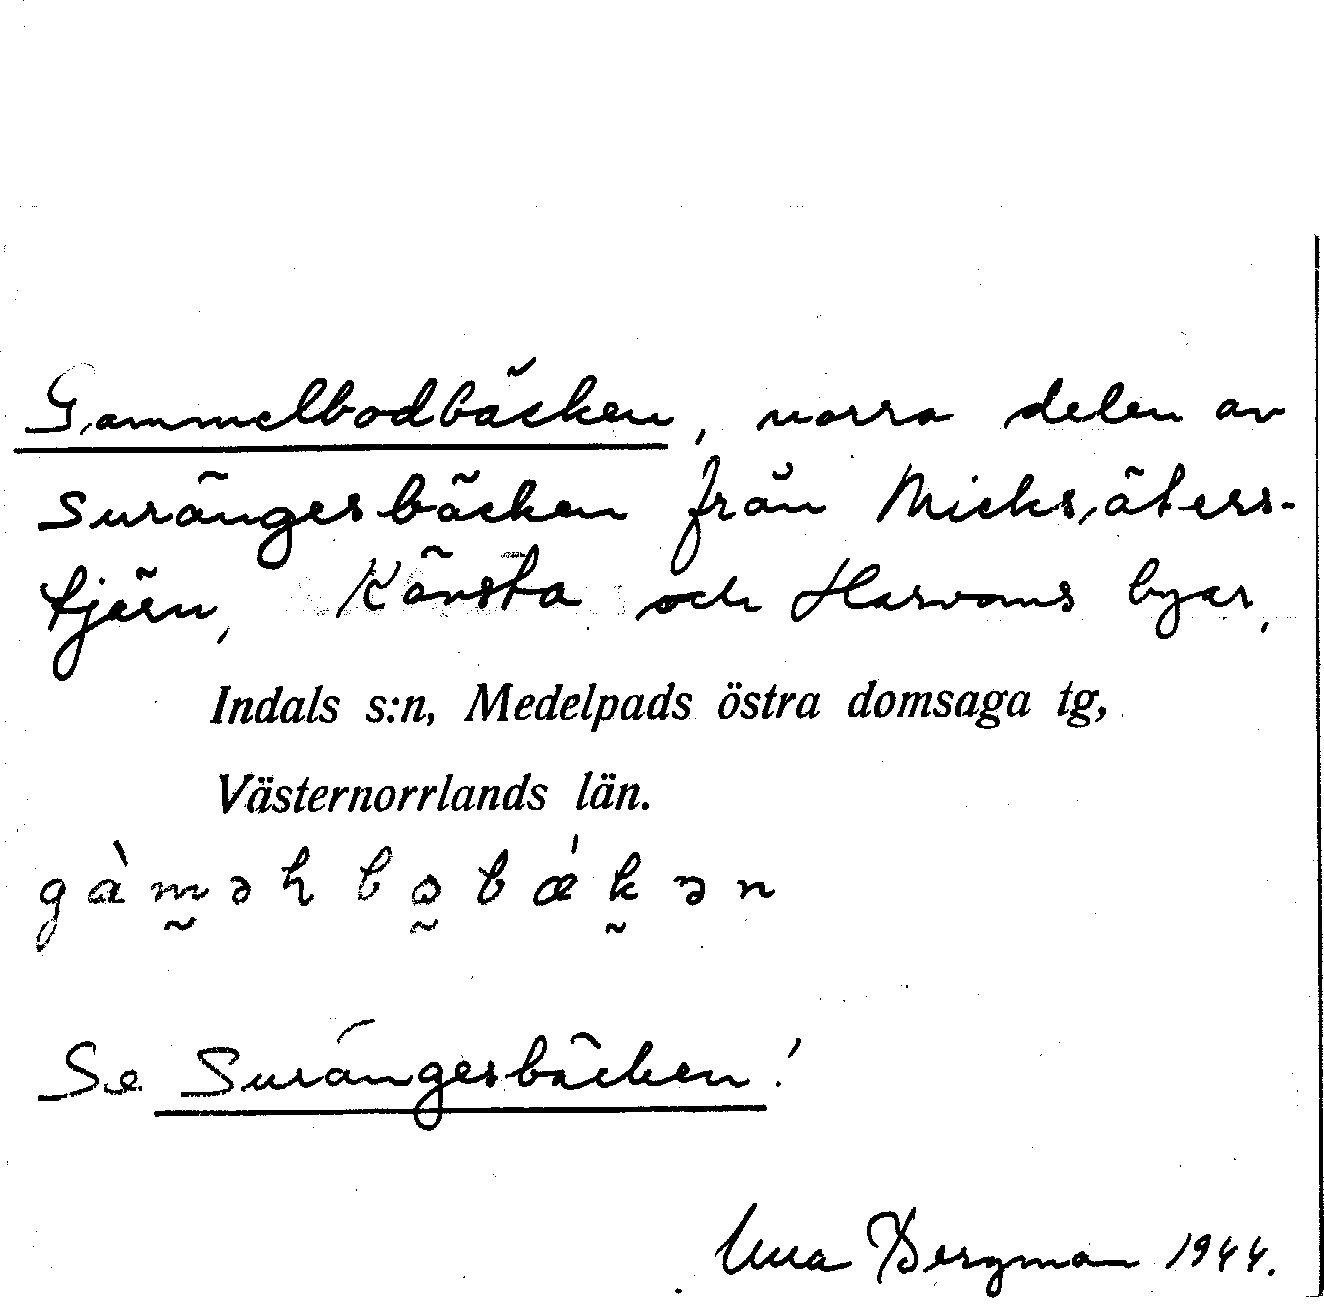 Gammelbodbäcken, norra delen av
Surängesbäcken från Micksäters-
tjärn, Kävsta och Harvoms byar,
Indals s:n, Medelpads östra domsaga tg,
Västernorrlands län.
gàm̰əɫbo̰bǽk̰ən
Se Surängesbäcken!
Bergman 1944.